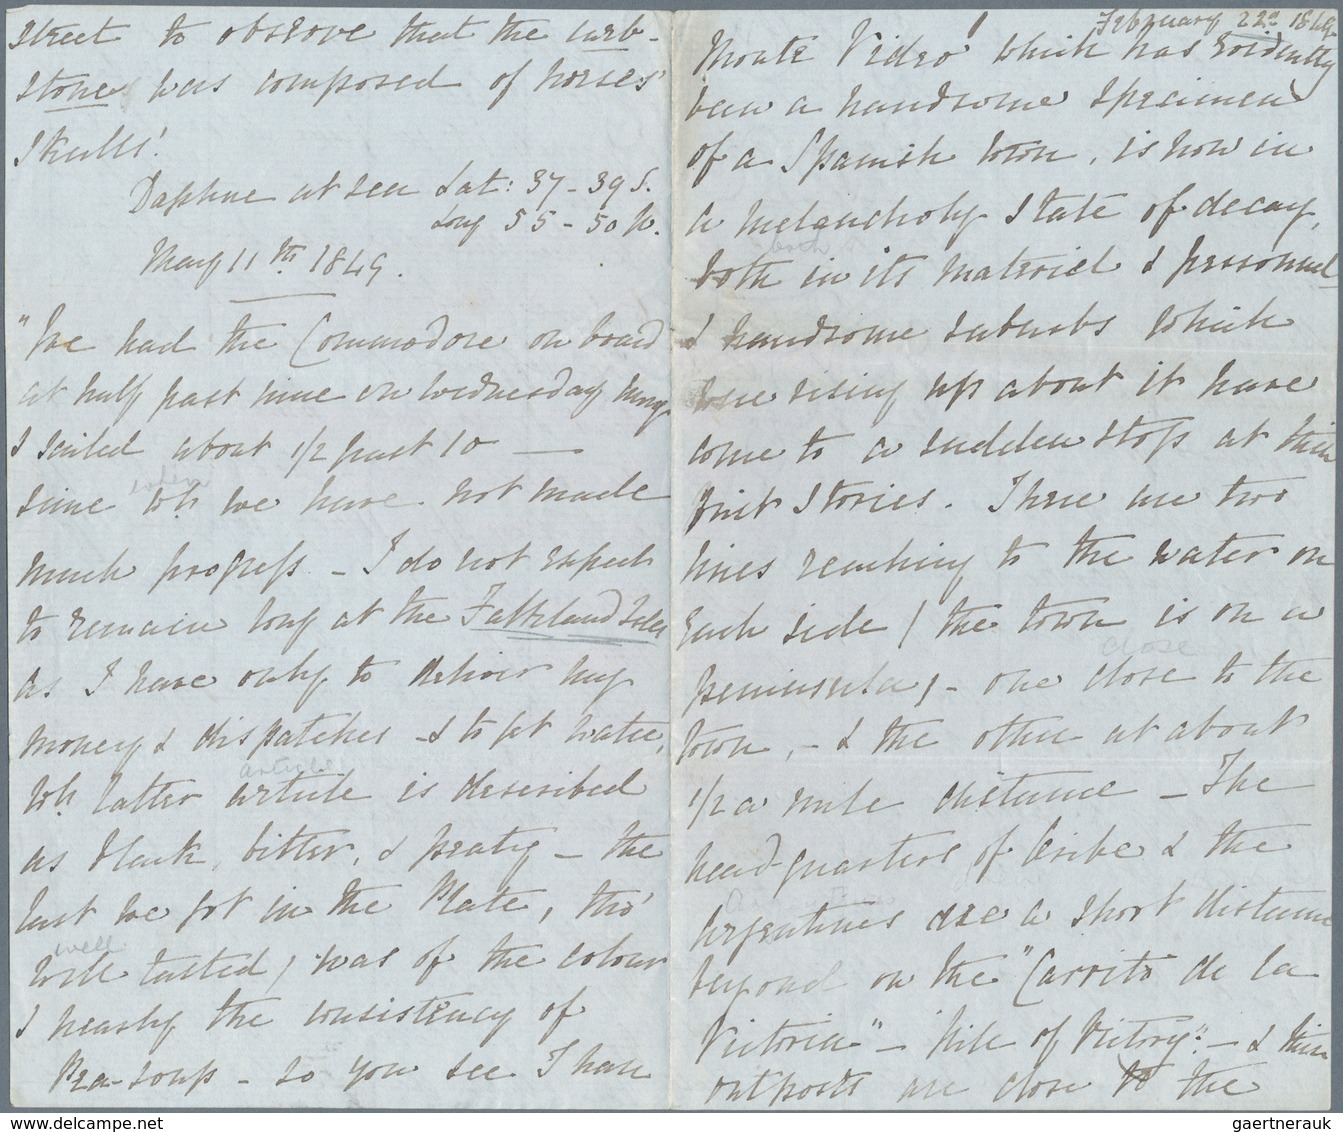 street to observe that the curb-
stone was composed of horses'
skulls!
Daphne at sea Lat: 37-39 S.
Long 55-50 W.
May 11th 1849.
"We had the Commodore on board
at half past nine on Wednesday
& sailed about 1/2 past 10 —
when
since wh we have not made
much progress - I do not expect
to remain long at the Falkland Isles
as I have only to deliver my
money & dispatches - & to get water,
article
wh. latter article is described
as black, bitter, & peaty - the
last we got in the Plate, tho'
well
well tasted, was of the colour
& nearly the consistency of
Pea-soup - so you see I have
February 22nd
Monte Video which has evidently
been a handsome specimen
of a Spanish town, is now in
a melancholy state of decay,
both
both in its materiel & personnel
& handsome suburbs which
were rising up about it have
come to a sudden stop at their
first stories. There are two
lines reaching to the water on
each side (the town is on a
close
peninsula) - one close to the
town, - & the other at about
1/2 a mile distance - The
head-quarters of Oribe & the
Argentines are a short distance
beyond on the "Cerrito de la
Victoria" - "Hill of Victory" - & their
outposts are close to the
gaertnerauk @ www.delcampe.net